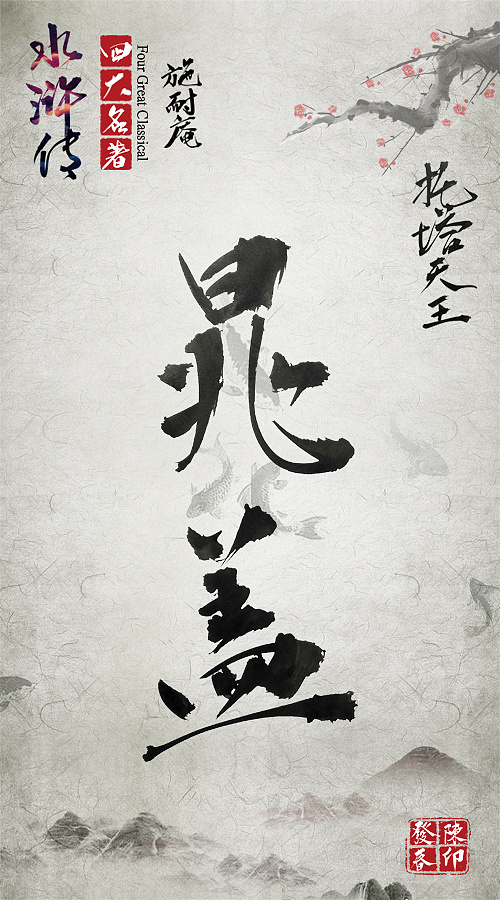 水浒传
四大名著
Four Great Classical
施耐庵
托塔天王
晁盖
陈印
發春